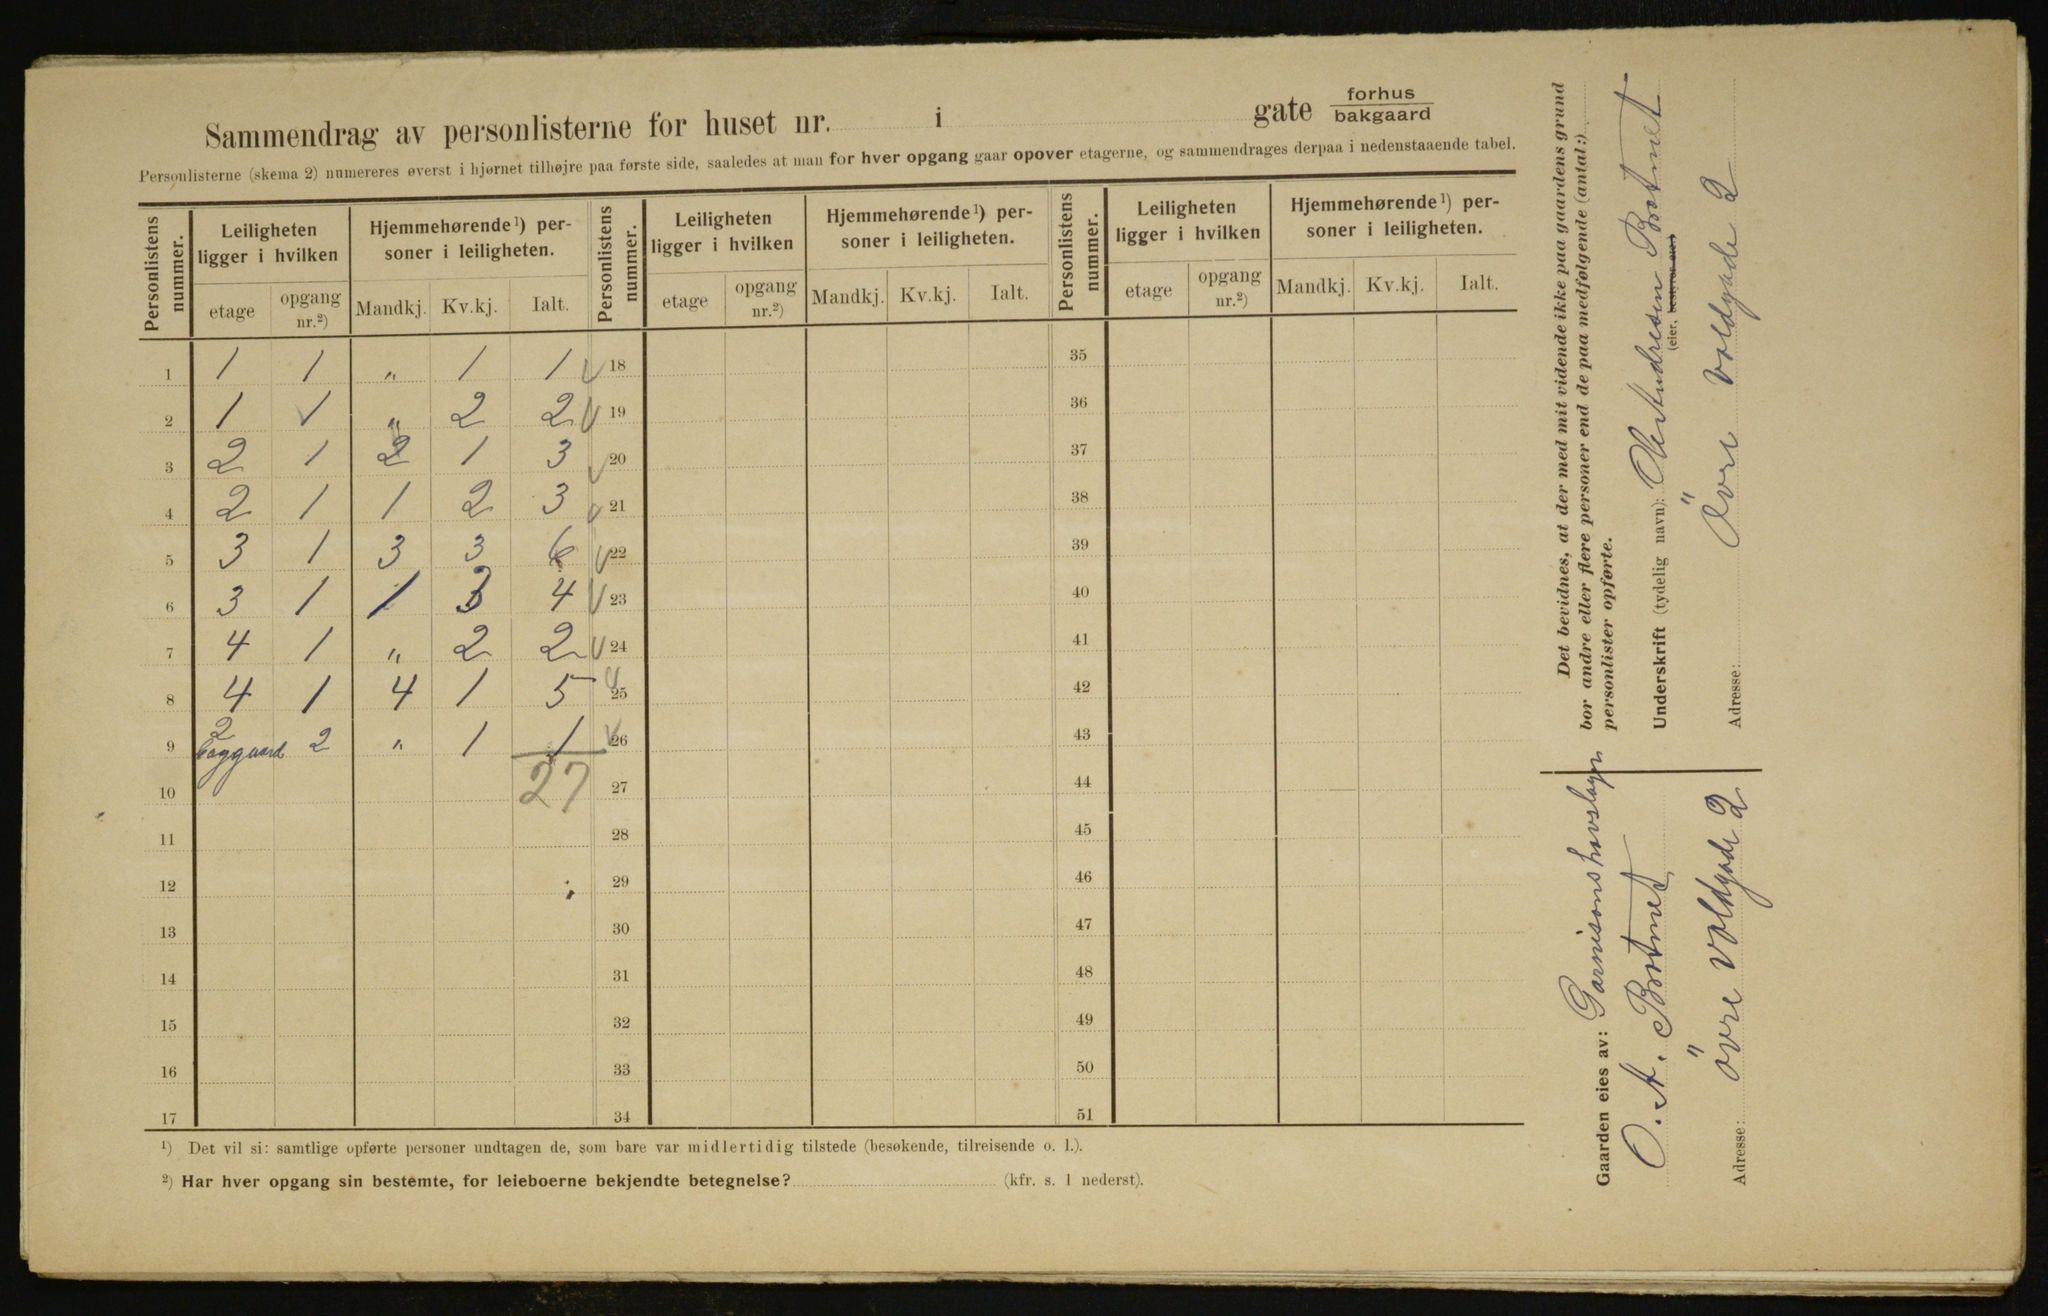 Sammendrag av personlisterne for huset nr. i gate forhus
bakgaard
Personlisterne (skema 2) numereres øverst i hjørnet tilhøjre paa første side, saaledes at man for hver opgang gaar opover etagerne, og sammendrages derpaa i nedenstaaende tabel.
Personlistens nummer. Leiligheten ligger i hvilken Hjemmehørende¹) personer i leiligheten. Personlistens nummer. Leiligheten ligger i hvilken Hjemmehørende¹) personer i leiligheten. Personlistens nummer. Leiligheten ligger i hvilken Hjemmehørende¹) personer i leiligheten.
etage opgang nr.²) Mandkj. Kv.kj. Ialt. etage opgang nr.²) Mandkj. Kv.kj. Ialt. etage opgang nr.²) Mandkj. Kv.kj. Ialt.
1 1 1 " 1 1 18 35
2 1 1 " 2 2 19 36
3 2 1 2 1 3 20 37
4 2 1 1 2 3 21 38
5 3 1 3 3 6 22 39
6 3 1 1 3 4 23 40
7 4 1 " 2 2 24 41
8 4 1 4 1 5 25 42
9 2 2 " 1 1 26 43
10 27 27 44
11 28 45
12 29 46
13 30 47
14 31 48
15 32 49
16 33 50
17 34 51
¹) Det vil si: samtlige opførte personer undtagen de, som bare var midlertidig tilstede (besøkende, tilreisende o. l.).
²) Har hver opgang sin bestemte, for leieboerne bekjendte betegnelse? (kfr. s. 1 nederst).
Det bevidnes, at der med mit vidende ikke paa gaardens grund
bor andre eller flere personer end de paa medfølgende (antal:)
personlister opførte.
Underskrift (tydelig navn): Andresen Botnet
(eier, bestyrer etc.)
Adresse: Övre Voldgade 2
Gaarden eies av: Garnisonshovslager
O. A. Botnet
Adresse: Övre Voldgade 2